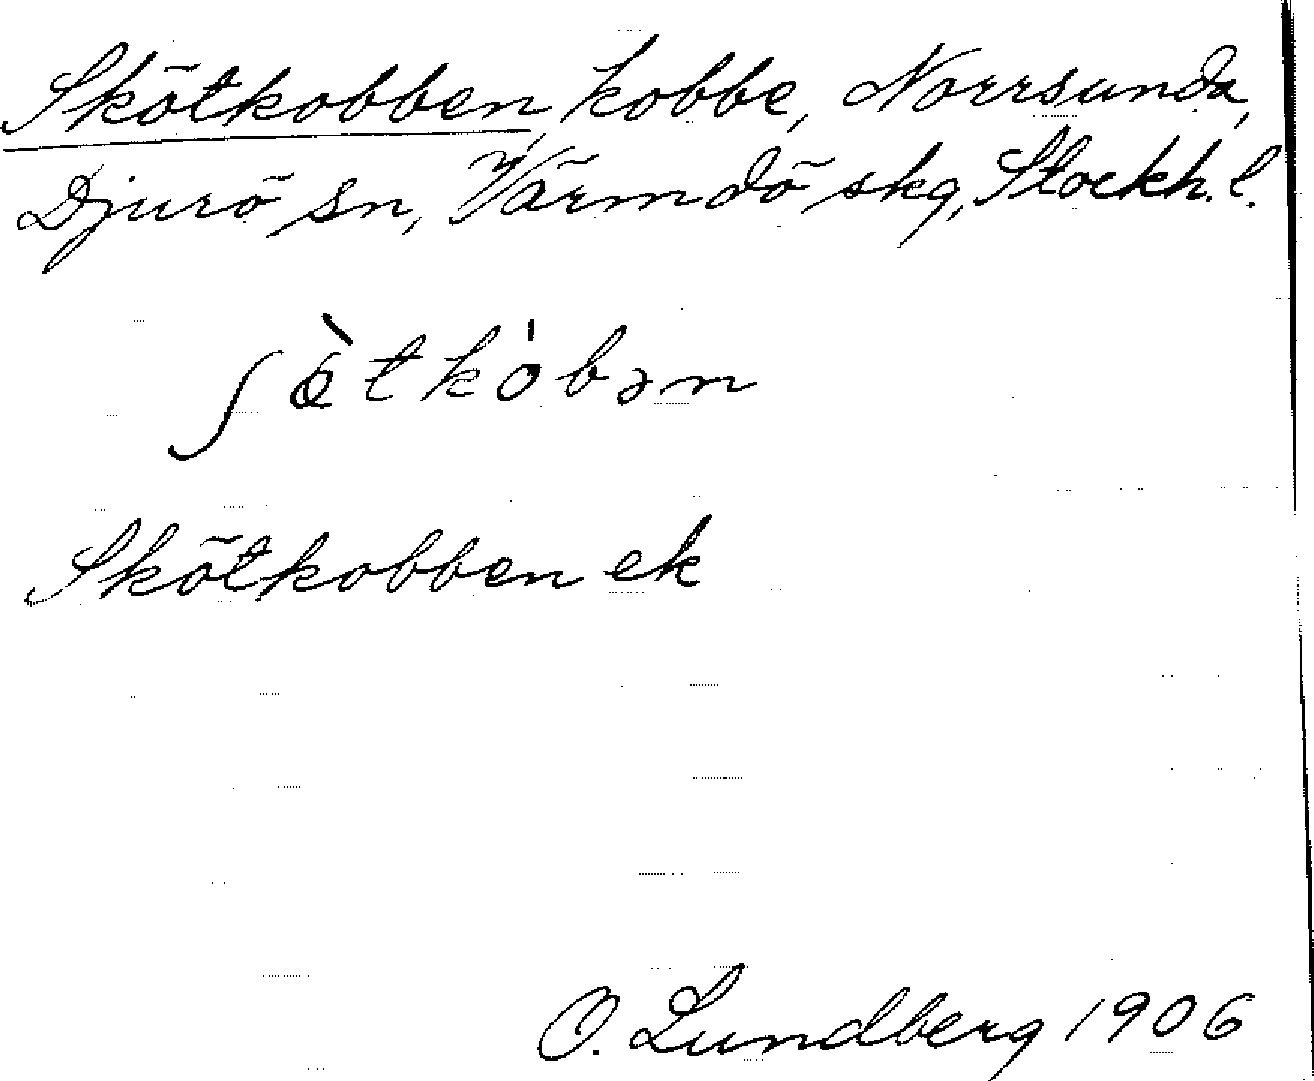 Skötkobben, kobbe, Norrsunda,
Djurö sn, Värmdö skg, Stockh. l.
ʃö̀tkȯbən
Skötkobben ek
O. Lundberg 1906